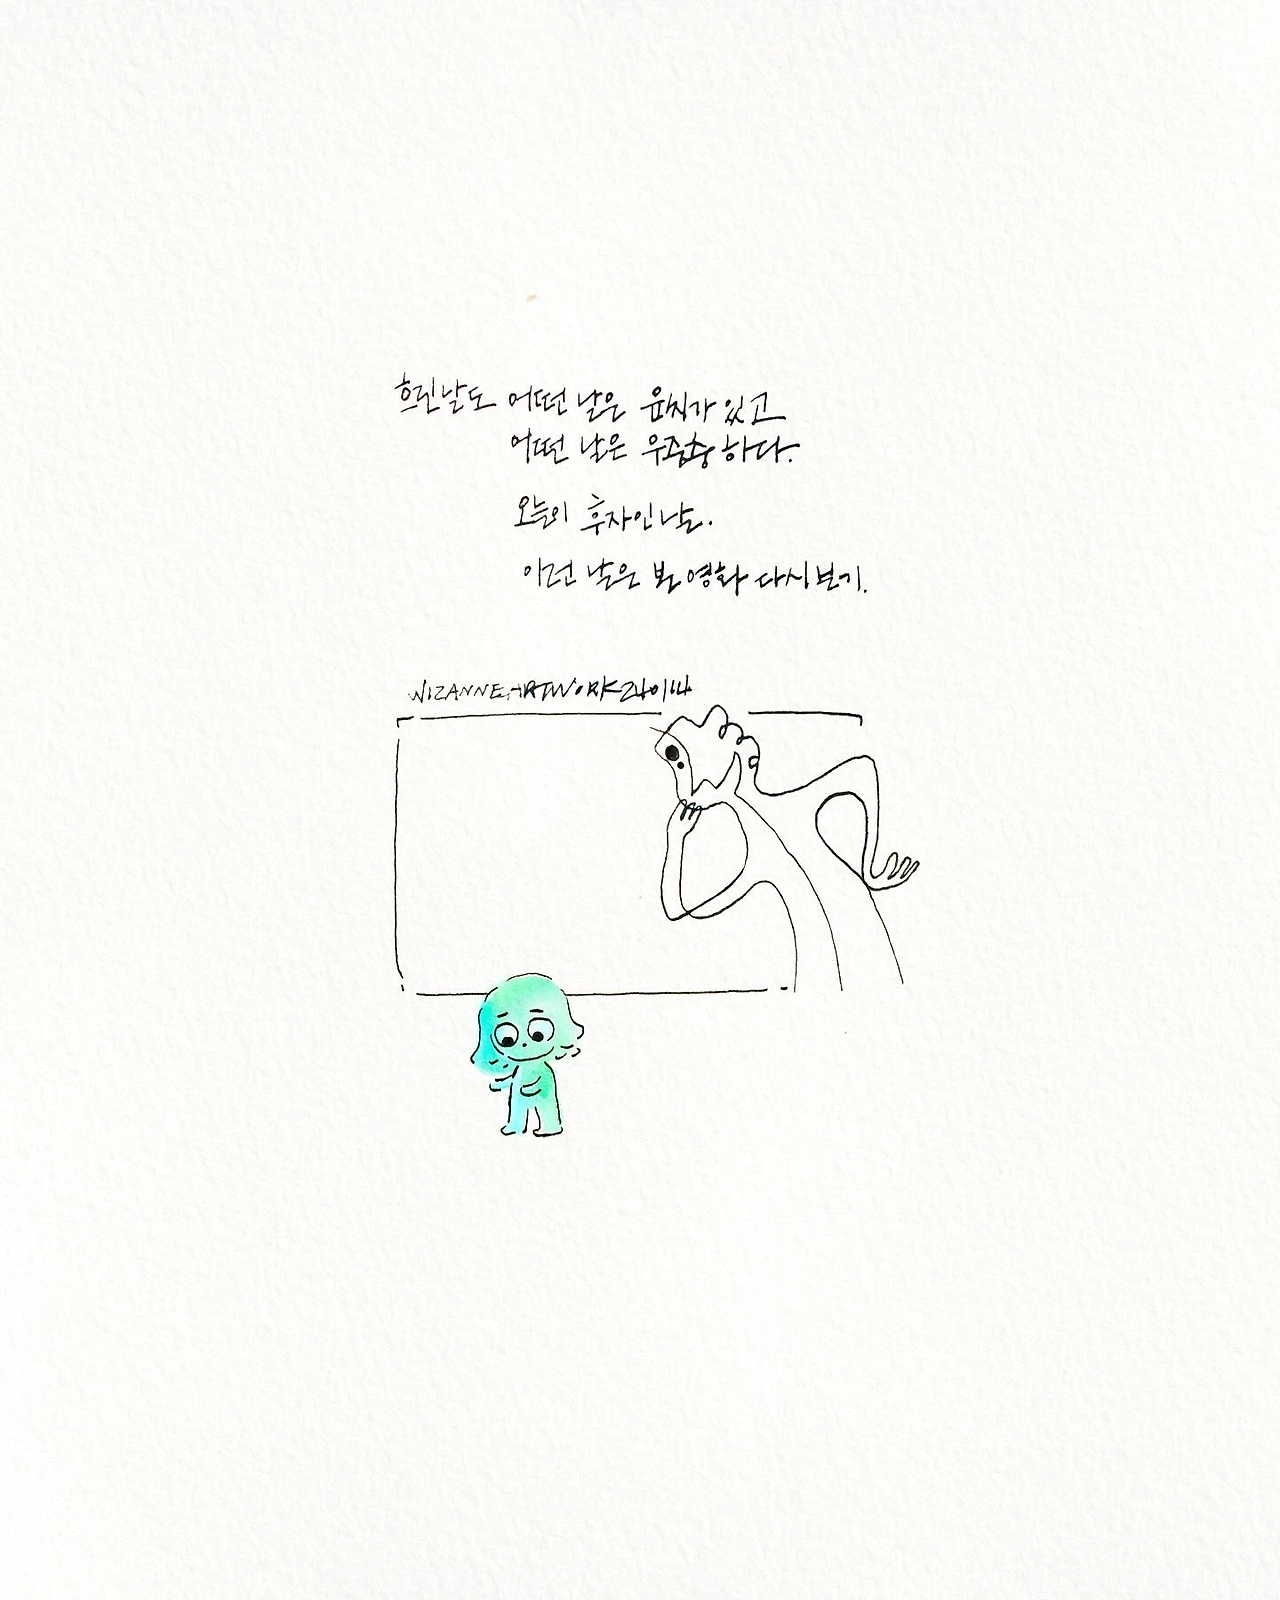 흐린날도 어떤 날은 운치가 있고
어떤 날은 우중충하다.
오늘이 후자인 날.
이런 날은 본 영화 다시보기.
WIZANNE ARTWORK240114